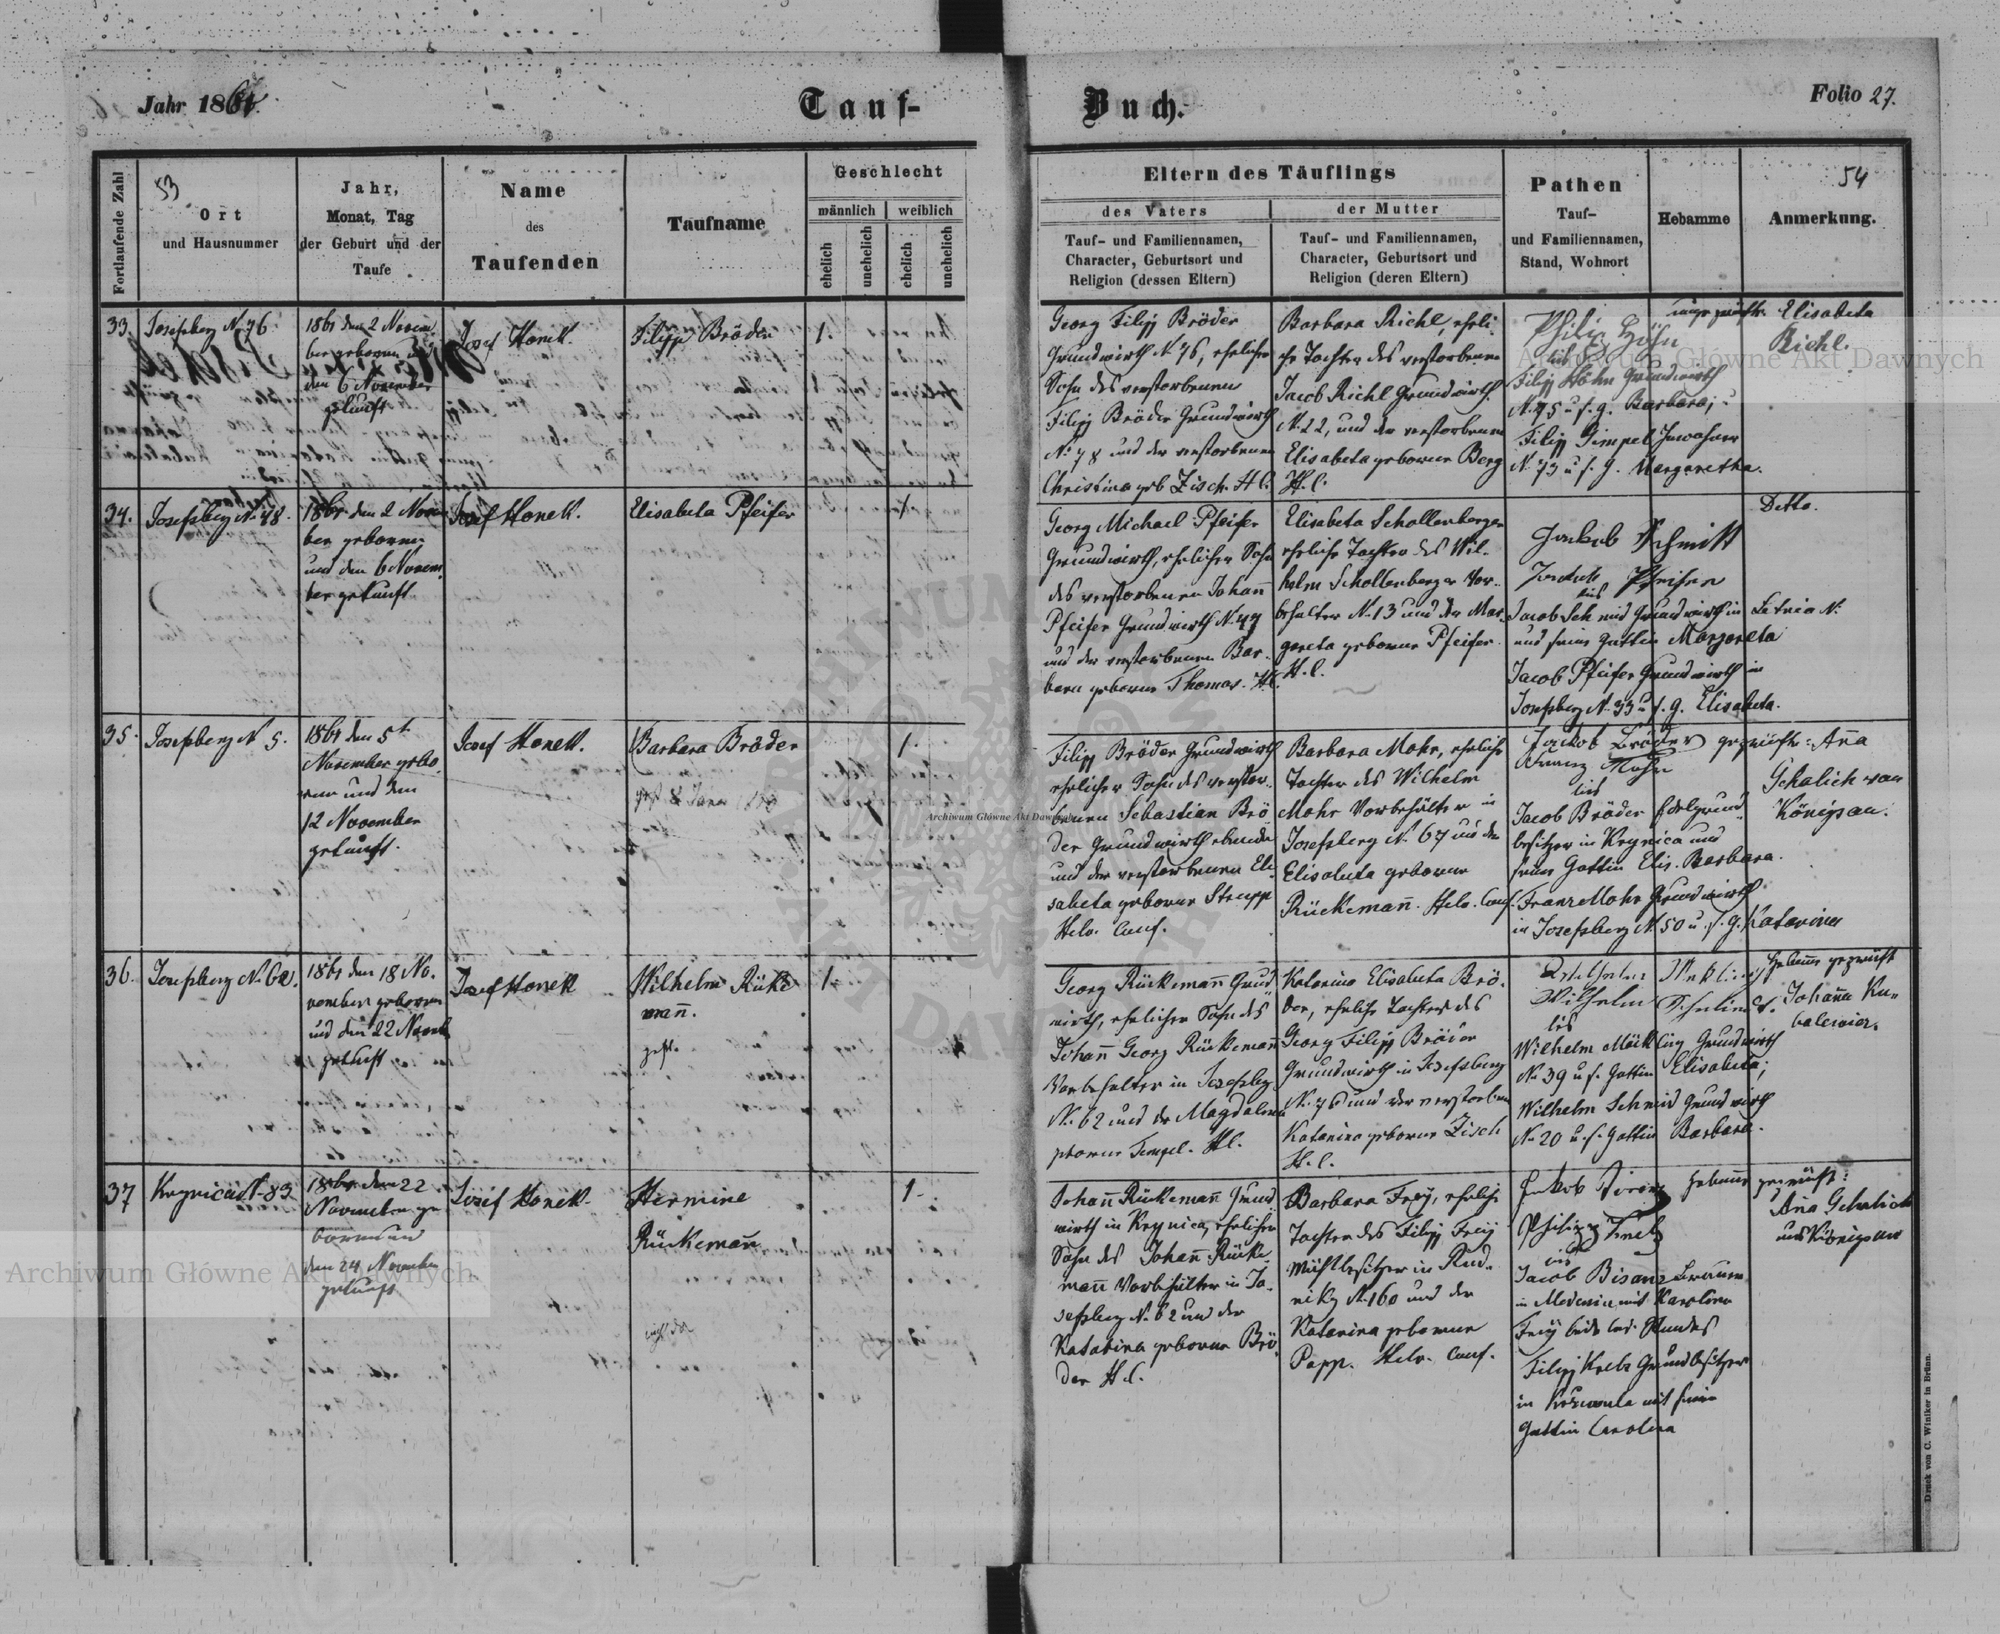 Jahr 1861.
Tauf-
Buch.
Folio 27.
Fortlaufende Zahl
53
Ort
und Hausnummer
Jahr,
Monat, Tag
der Geburt und der
Taufe
Name
des
Taufenden
Taufname
Geschlecht
männlich
weiblich
ehelich
unehelich
ehelich
unehelich
Eltern des Täuflings
des Vaters
der Mutter
Tauf- und Familiennamen,
Character, Geburtsort und
Religion (dessen Eltern)
Tauf- und Familiennamen,
Character, Geburtsort und
Religion (deren Eltern)
Pathen
Tauf-
und Familiennamen,
Stand, Wohnort
Hebamme
54
Anmerkung.
33.
Josefsberg N. 76.
1861 den 2 Novem
ber geboren und
den 6 November
getauft
Josef Honek.
Filipp Bröder
1.
Georg Filipp Bröder
Grundwirth N. 76, ehelicher
Sohn des verstorbenen
Filipp Bröder Grundwirth
N. 78 und der verstorbenen
Christina geb Zisch. H C.
Barbara Richl, eheli-
che Tochter des verstorbenen
Jacob Richl Grundwirth
N. 22, und der verstorbenen
Elisabeta geborene Berg
H. C.
Philip Höhn
Filipp Höhn Grundwirth
N. 75 u. s. g. Barbara;
Filipp Gimpel Inwohner
N. 73 u. s. g. Margaretha.
Elisabeta
Richl.
34.
Josefsberg N. 48.
1861 den 2 Novem
ber geboren
und den 6 Novem
ber getauft
Josef Honek.
Elisabeta Pfeifer
1
Georg Michael Pfeifer
Grundwirth, ehelicher Sohn
des verstorbenen Johann
Pfeifer Grundwirth N. 47
und der verstorbenen Bar-
bara geborne Thomas. H C.
Elisabeta Schollenberger
eheliche Tochter des Wil-
helm Schollenberger Vor-
behalter N. 13 und der Mar-
gareta geborne Pfeifer.
H. C.
Jakob Schmitt
Jakob Pfeifer
Jacob Schmid Grundwirth in Letnia N:
und seine Gattin Margareta
Jacob Pfeifer Grundwirth in
Josefsberg N. 33 u s. g. Elisabeta.
Detto.
35.
Josefsberg N 5.
1861 den 5t
November gebo-
ren und den
12 November
getauft.
Josef Honek.
Barbara Bröder
1.
Filipp Bröder Grundwirth
ehelicher Sohn des verstor-
benen Sebastian Brö-
der Grundwirth ebenda
und der verstorbenen Eli-
sabeta geborne Strupp
Helv. Conf.
Barbara Mohr, eheliche
Tochter des Wilhelm
Mohr Vorbehälter in
Josefsberg N. 67 und der
Elisabeta geborne
Rückemann. Helv. Conf.
Jackob Bröder
Franz Mohr
Jacob Bröder Edelgrund-
besitzer in Krynica und
seine Gattin Elis. Barbara.
Franz Mohr Grundwirth
in Josefsberg N. 50 u. s. g. Katarina
geprüfte: Anna
Gehalich von
Königsau.
36.
Josefsberg N. 62.
1861 den 18 No-
vember geboren
und den 22 Novemb
getauft
Josef Honek
Wilhelm Rücke
mann.
gest.
1.
Georg Rückemann Grund-
wirth, ehelicher Sohn des
Johann Georg Rückemann
Vorbehalter in Josefsberg
N. 62 und der Magdalena
geborne Tempel. H C.
Katarina Elisabeta Brö-
der, eheliche Tochter des
Georg Filipp Bröder
Grundwirth in Josefsberg
N. 76 und der verstorbenen
Katarina geborne Zisch
H. C.
Wilhelm
Wilhelm Möckling Grundwirth
N. 39 u s. Gattin Elisabeta;
Wilhelm Schmid Grundwirth
N. 20 u. s. Gattin Barbara.
Hebamme geprüft
Johanna Ku-
balewicz.
37
Krynica N. 83
1861 den 22
November ge
boren und
den 24 November
getauft
Josef Honek.
Hermine
Rückemann
1.
Johann Rückemann Grund
wirth in Krynica, ehelicher
Sohn des Johann Rücke-
mann Vorbehälter in Jo-
sefsberg N. 62 und der
Katarina geborne Brö-
der H C.
Barbara Frey, eheliche
Tochter des Filipp Frey
Mühlbesitzer in Rud-
niky N. 160 und der
Katarina geborene
Popp. Helv. Conf.
Jakob Bisanz
Philipp Krebs
Jacob Bisanz
in Medenia mit Karolina
Frey beide led. Standes
Filipp Krebs Grundbesitzer
in mit seiner
Gattin Carolina
Hebamme geprüft:
Anna Gehalich
aus Königsau
Druck von C. Winiker in Brünn.
Archiwum Główne Akt Dawnych
Archiwum Główne Akt Dawnych
Archiwum Główne Akt Dawnych